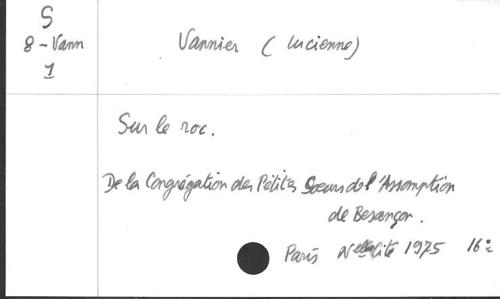 S
8 - Vann
1
Vannier (Lucienne)
Sur le roc.
De la Congrégation des Petites Soeurs de l'Assomption
de Besançon.
Paris Nelle Cité 1975 16º